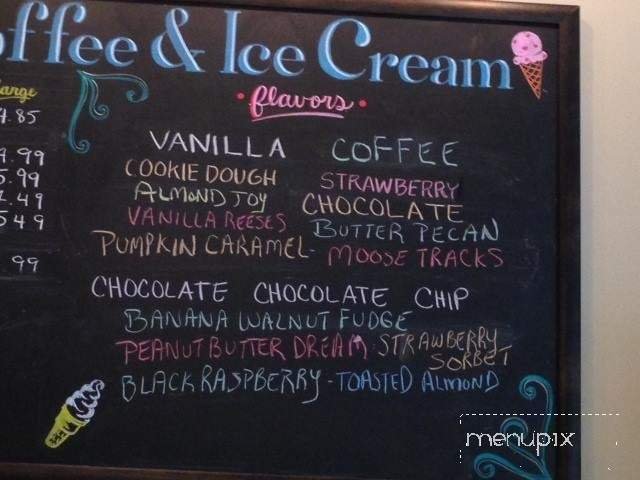 offee & Ice Cream
flavors
4.85
.99
5.99
.49
549
99
VANILLA COFFEE
COOKIE DOUGH STRAWBERRY
ALMOND JOY CHOCOLATE
VANILLA REESES BUTTER PECAN
PUMPKIN CARAMEL- MOOSE TRACKS
CHOCOLATE CHOCOLATE CHIP
BANANA WALNUT FUDGE
PEANUT BUTTER DREAM STRAWBERRY
SORBET
BLACK RASPBERRY - TOASTED ALMOND
menupix